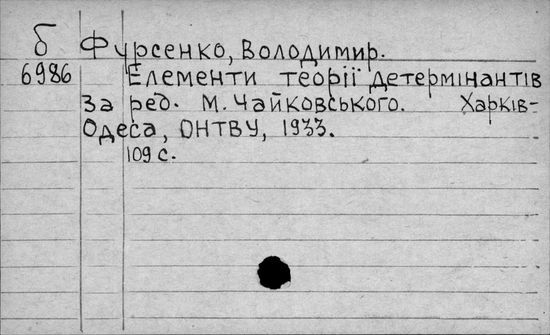 б Фурсенко, Володимир.
6986 Елементи теорії детермінантів
За ред. М. Чайковського. Харків-
Одеса, ОНТВУ, 1933.
109 с.